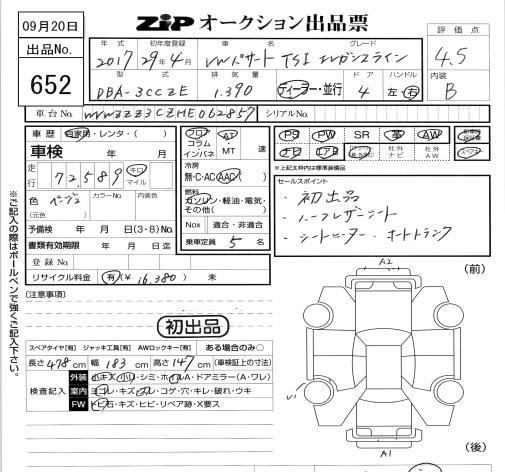 09月20日
出品No.
652
ZIP オークション出品票
評価点
4.5
内装
B
年式 初年度登録 車名 グレード
2017 29年4月 VWパサート TSI エレガンスライン
型式 排気量 ドア ハンドル
DBA-3CCZE 1.390 ディーラー・並行 4 左・右
車台No. WVWZZZ3CZHE062857 シリアルNo.
車歴 自家用・レンタ・( )
車検 年 月
走行 72,589 キロ マイル
色 ベージュ カラーNo. 内装色
(元色)
予備検 年 月 日(3・8)No.
書類有効期限 年 月 日迄
登録No.
リサイクル料金 有(¥ 16,380) 未
フロア コラム インパネ AT・MT 速
冷房
無・C・AC・AAC
燃料
ガソリン・軽油・電気・その他( )
Nox 適合・非適合
乗車定員 5 名
PS PW SR 革 AW
ナビ エアB 社外ナビ 社外AW
*上記太枠内は標準装備品
セールスポイント
・初出品
・ハーフレザーシート
・シートヒーター・オートトランク
(注意事項)
初出品
スペアタイヤ[有] ジャッキ工具[有] AWロックキー[有] ある場合のみ○
長さ 478 cm 幅 183 cm 高さ 147 cm (車検証上の寸法)
検査記入
外装 小キズ・小凹・シミ・ホイルA・ドアミラー(A・ワレ)
室内 ヨゴレ・キズ・スレ・コゲ・穴・キレ・破れ・ウキ
FW トビ石・キズ・ヒビ・リペア跡・X要ス
※ご記入の際はボールペンで強くご記入下さい。
(前)
A2
A1
(後)